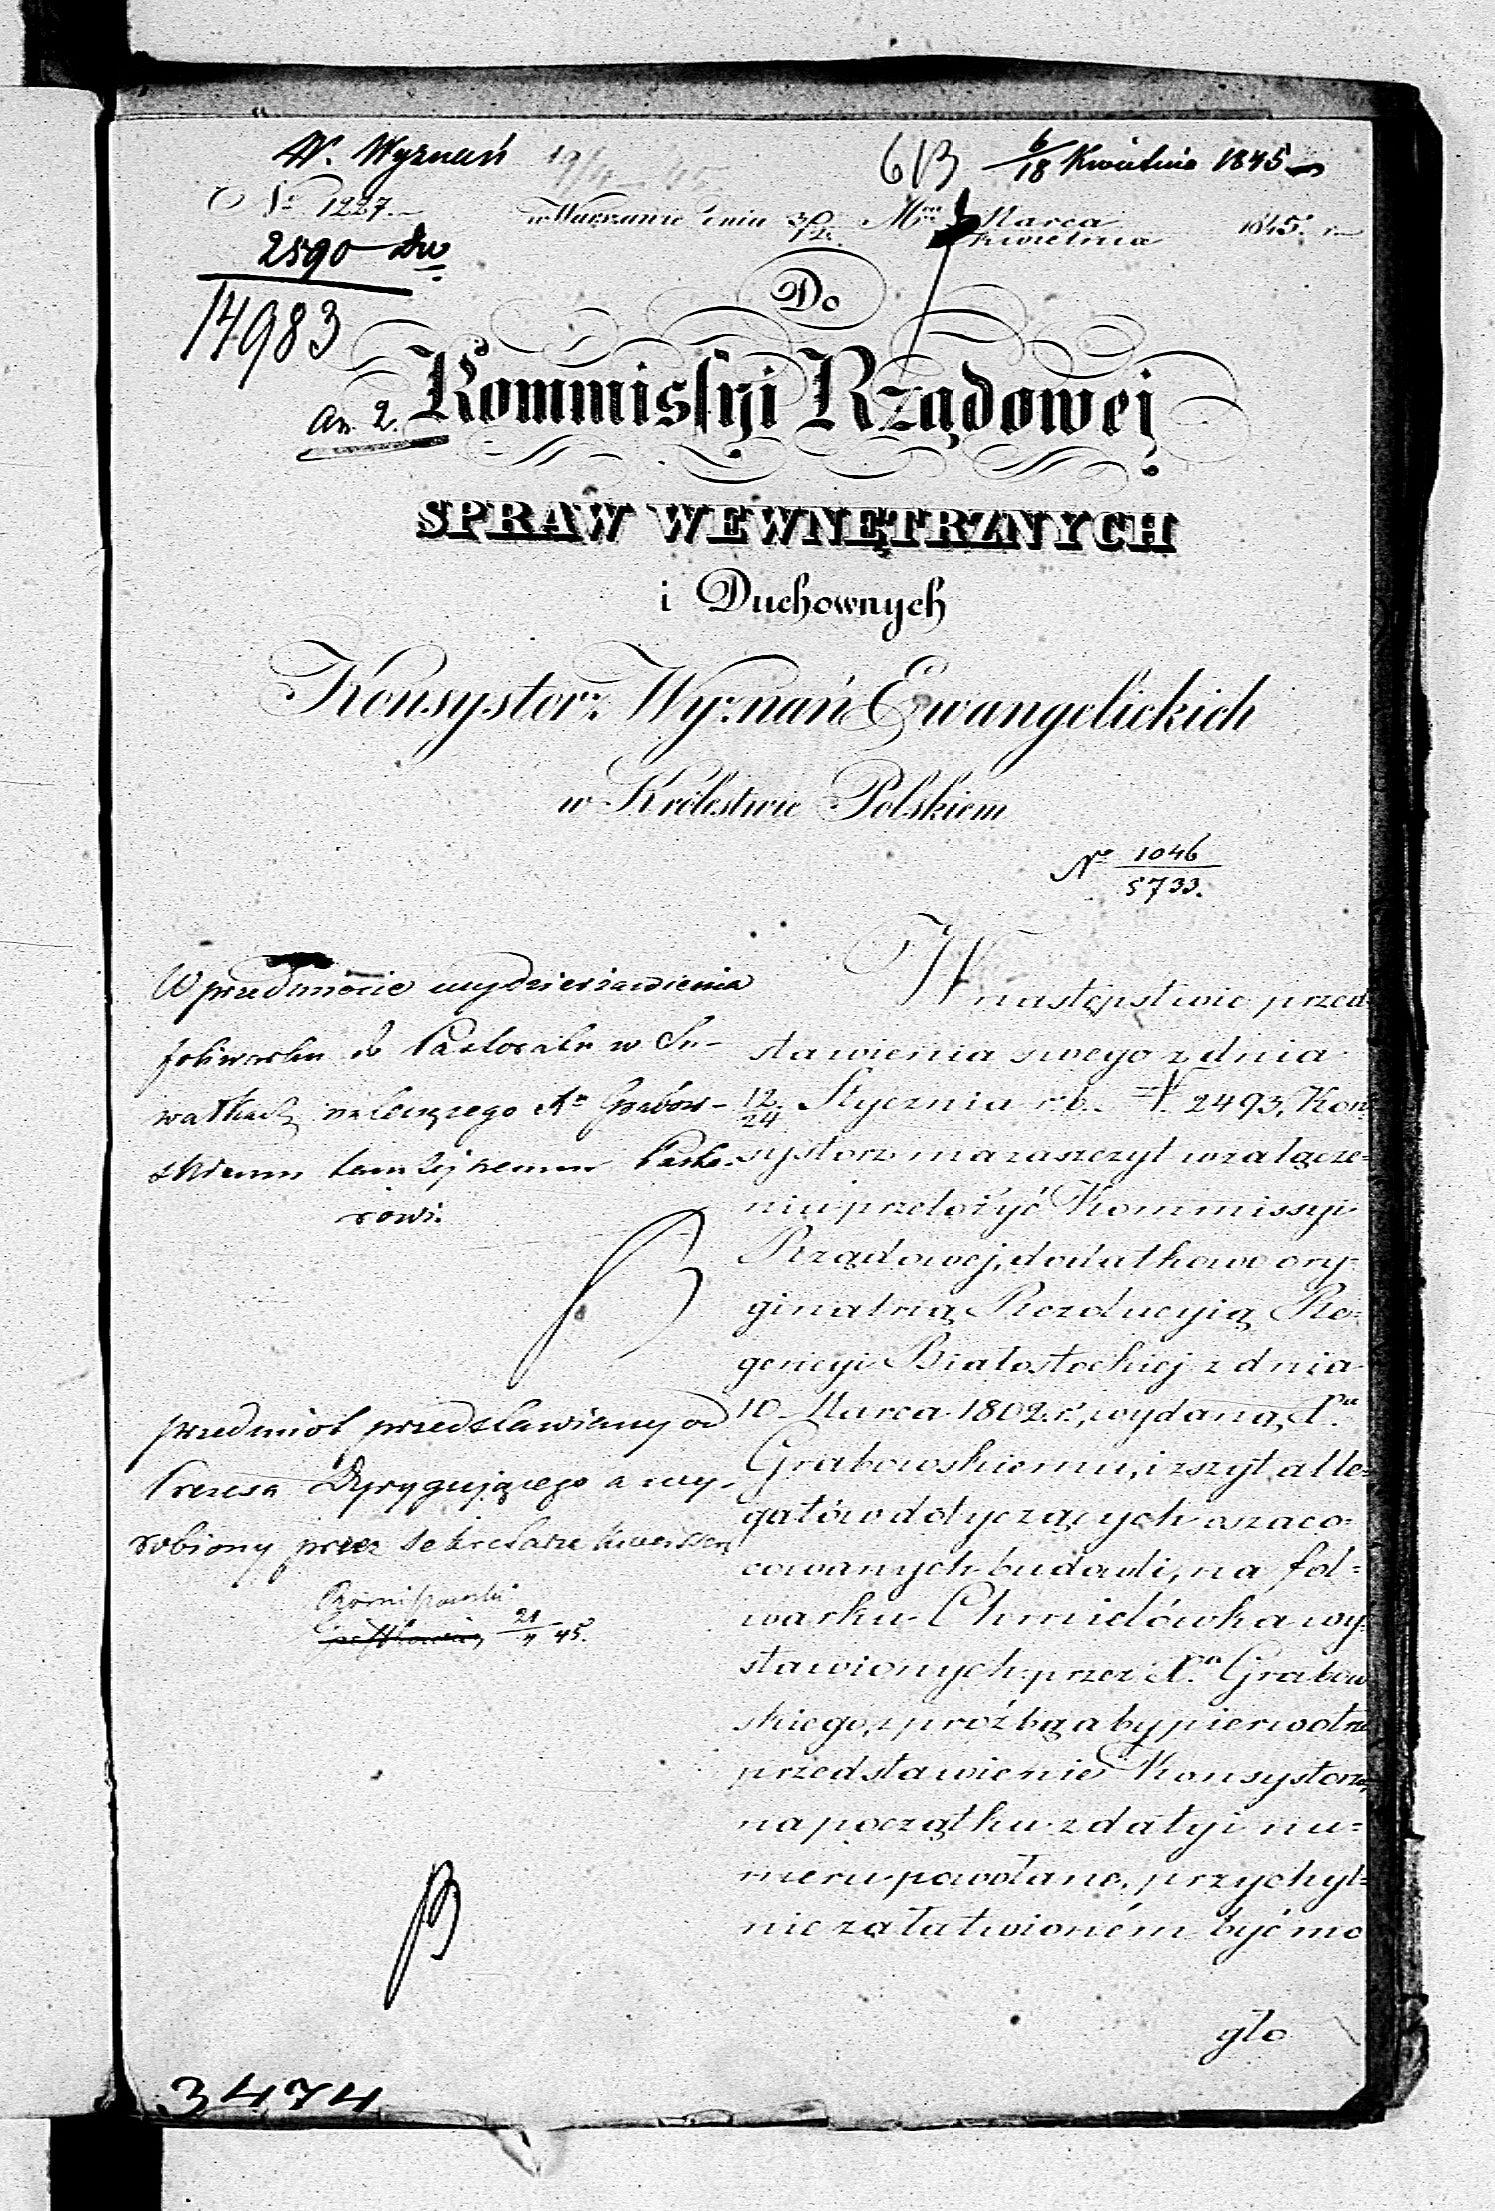 W. Wyznań
613 6/18 Kwietnia 1845
Nr 1227.
w Warszawie dnia Marca Kwietnia 1845. r.
2590
14983
Do
Kommissyi Rządowej
An. 2.
SPRAW WEWNĘTRZNYCH
i Duchownych
Konsystorz Wyznań Ewangelickich
w Królestwie Polskiem
No 1046/5733.
W przedmiocie wydzierżawienia
folwarku do Pastoratu w Su-
wałkach należącego Xu Grabow-
skiemu tamtejszemu Pasto-
rowi.
przedmiot przedstawiony od
Prezesa Dyrygującego a wy-
robiony przez Sekretarza
21/4 45.
W następstwie przed-
stawienia swego z dnia
12/24 Stycznia r. b. N. 2493, Kon-
systorz ma zaszczyt w załącze-
niu przełożyć Kommissyi
Rządowej, dodatkowo ory-
ginalną Rezolucyią Re-
gencyi Białostockiej z dnia
10 Marca 1802. r., wydaną X.u
Grabowskiemu, i zszyt alle-
gatów dotyczących oszaco-
cowanych budowli, na fol-
warku Chmielówka wy-
stawionych przez X.a Grabow
skiego, z proźbą aby pierwotne
przedstawienie Konsystorza,
na początku z daty i nu-
meru powołane, przychyl-
nie załatwioném być mo
gło
3474